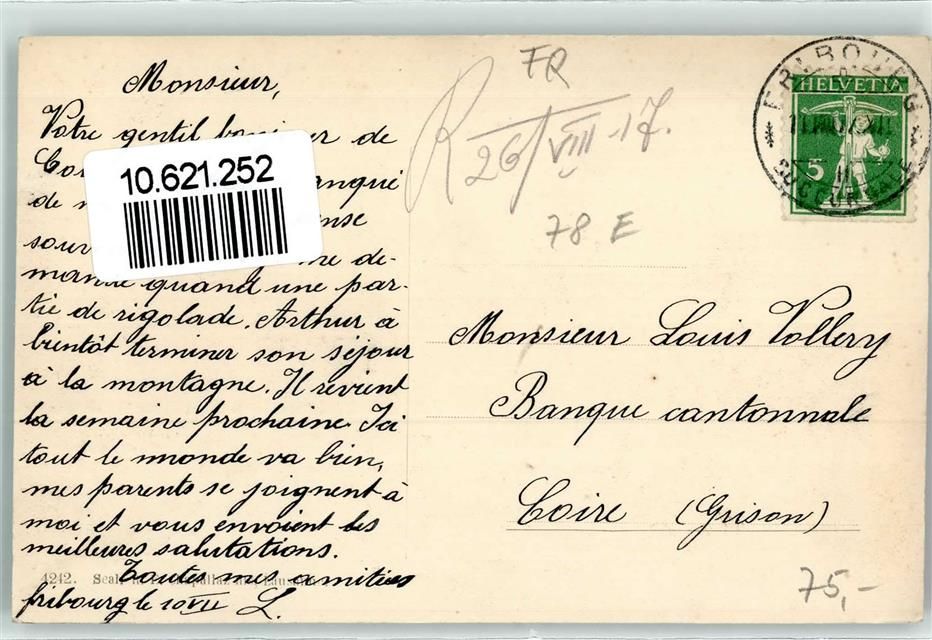 Monsieur,
Votre gentil de
anqué
de
ense
me de-
mande quand une par-
tie de rigolade. Arthur à
bientôt terminer son séjour
à la montagne. Il revient
la semaine prochaine. Ici
tout le monde va bien,
mes parents se joignent à
moi et vous envoient les
meilleures salutations.
Toutes mes amitiés
fribourg le 10 VII L.
4242.
10.621.252
FR
R 26/VIII-17.
78 E
FRIBOURG
SUCCURSALE
HELVETIA
5
Monsieur Louis Vollery
Banque cantonnale
Coire (Grison)
75,-